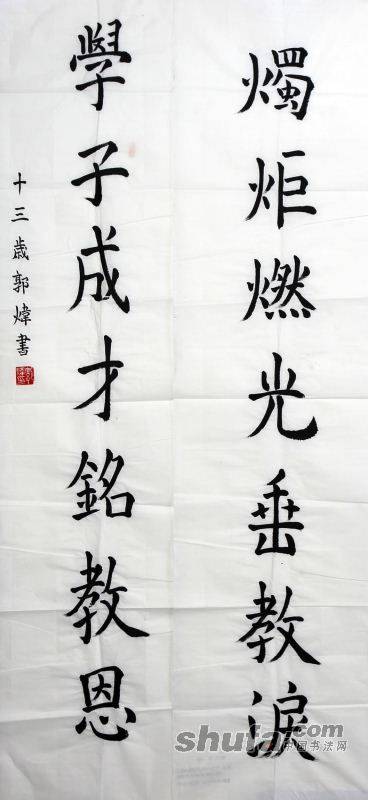 燭炬燃光垂教淚
學子成才銘教恩
十三歲郭煒書
shufa.com
中国书法网